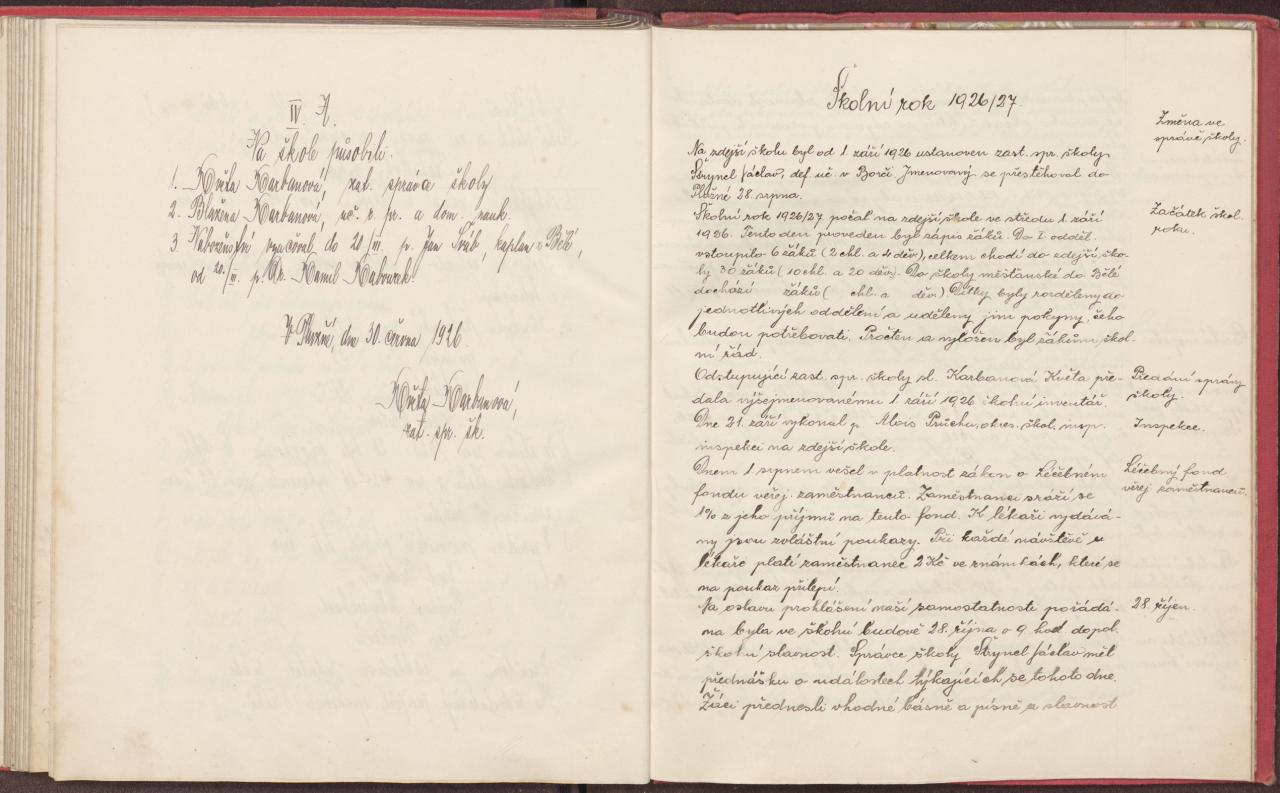 IV. A.
Na škole působili:
1. Květa Karbanová, zat. správa školy
2. Blažena Karbanová, uč. ž. pr. a dom. nauk.
3. Náboženství vyučoval do 20/III. p. Jan Šváb, kaplan z Bělé,
od 20./III. p. Dr. Kamil
V Plazné, dne 30. června 1926.
Květa Karbanová,
zat. spr. šk.
Školní rok 1926/27.
Změna ve
správě školy.
Na zdejší školu byl od 1. září 1926 ustanoven zast. spr. školy
Václav, def. uč. v Borči. Jmenovaný se přestěhoval do
28. srpna.
Začátek škol.
roku.
Školní rok 1926/27 počal na zdejší škole ve středu 1. září
1926. Tento den proveden byl zápis žáků. Do I. odděl.
vstoupilo 6 žáků (2 chl. a 4 děv.), celkem chodí do zdejší ško-
ly 30 žáků (10 chl. a 20 děv.). Do školy měšťanské do Bělé
dochází žáků ( chl. a děv.). Dítky byly rozděleny do
jednotlivých oddělení a uděleny jim pokyny, čeho
budou potřebovati. Pročten a vyložen byl žákům škol-
ní řád.
Předání správy
školy.
Odstupující zast. spr. školy sl. Karbanová Květa pře-
dala výšejmenovanému 1. září 1926 školní inventář.
Inspekce.
Dne 21. září vykonal p. Alois Průcha, okres. škol. insp.
inspekci na zdejší škole.
Léčebný fond
veřej. zaměstnanců.
Dnem 1. srpnem vešel v platnost zákon o Léčebném
fondu veřej. zaměstnanců. Zaměstnanci sráží se
1% z jeho příjmů na tento fond. K lékaři vydává-
ny jsou zvláštní poukazy. Při každé návštěvě u
lékaře platí zaměstnanec 2 Kč ve známkách, které se
na poukaz přilepí.
28. říjen.
Na oslavu prohlášení naší samostatnosti pořádá-
na byla ve školní budově 28. října o 9. hod. dopol.
školní slavnost. Správce školy Václav měl
přednášku o událostech týkajících se tohoto dne.
Žáci přednesli vhodné básně a písně a slavnost